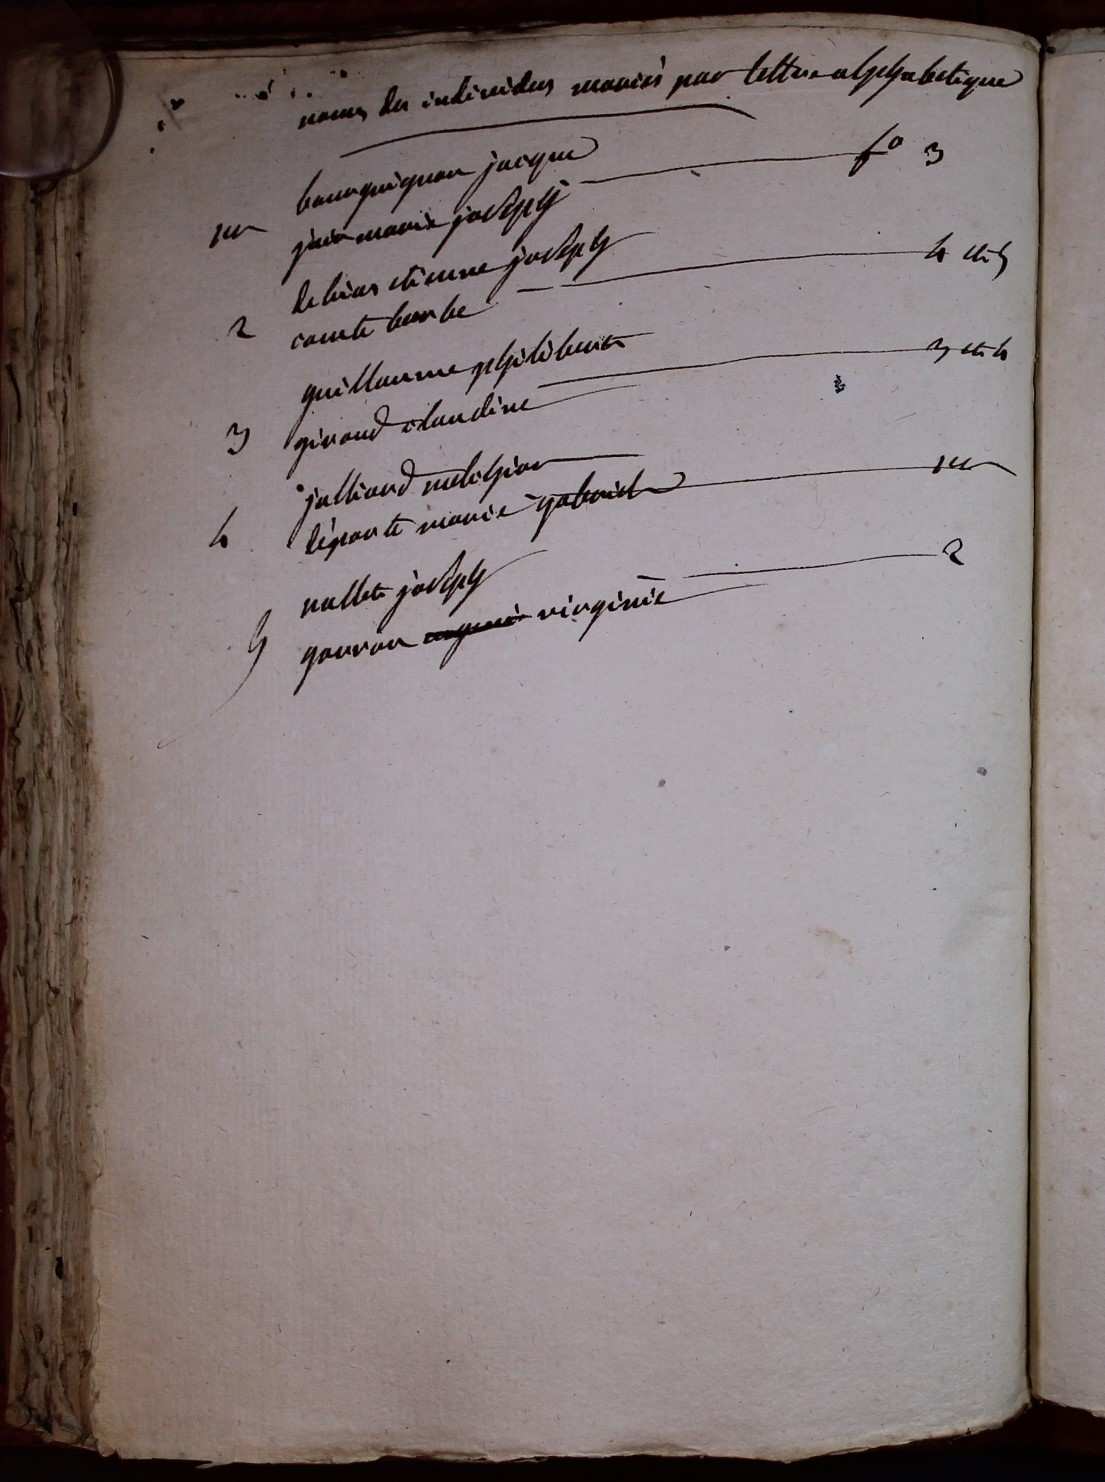 noms des individus mariés par lettre alphabetique
1er bourguignon jacque
jair marie joseph f° 3
2 debias etienne joseph
comte barbe 4 et 5
3 guillaume philibert
giraud claudine 3 et 4
4 julliard melchior
marie gabriel 1er
5 nallet joseph
gonron virginie 2